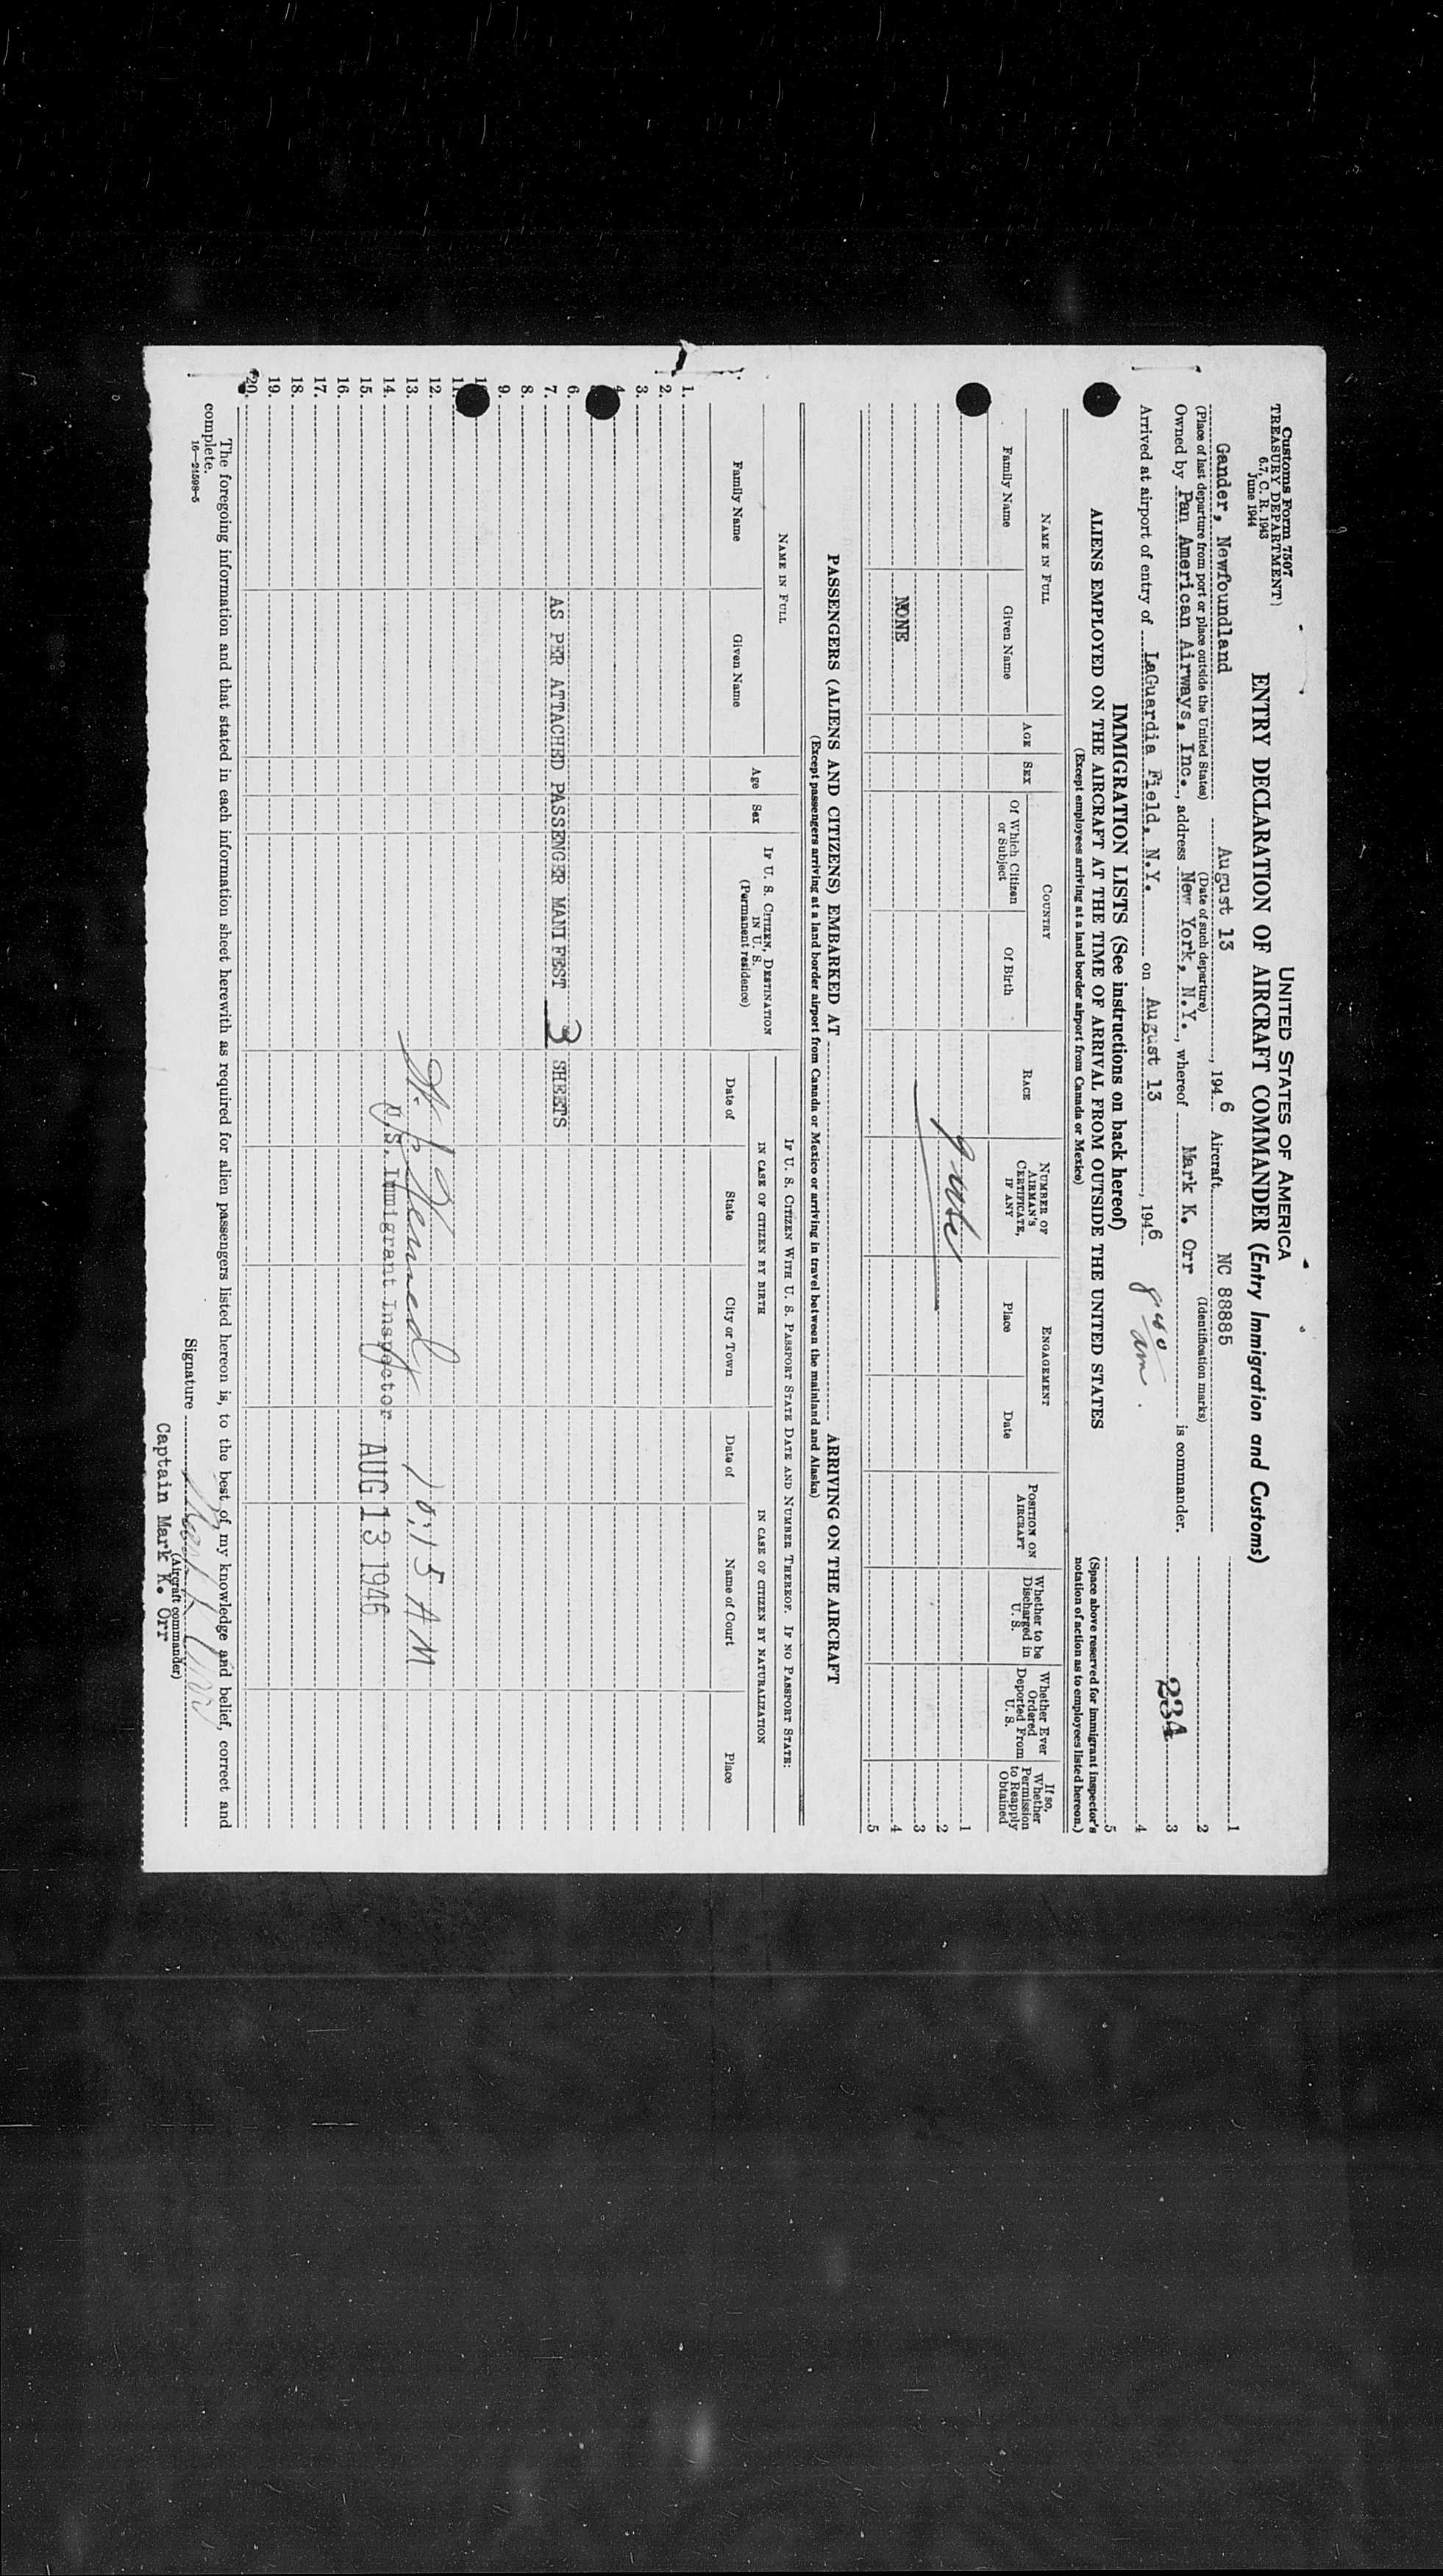 Customs Form 7507
TREASURY DEPARTMENT
6.7, C. R. 1943
June 1944
UNITED STATES OF AMERICA
ENTRY DECLARATION OF AIRCRAFT COMMANDER (Entry Immigration and Customs)
Gander, Newfoundland August 13, 1946 Aircraft NC 88885
(Place of last departure from port or place outside the United States) (Date of such departure) (Identification marks)
Owned by Pan American Airways, Inc., address New York, N.Y., whereof Mark K. Orr is commander.
Arrived at airport of entry of LaGuardia Field, N.Y. on August 13, 1946 am.
1
2
3 234
4
5
(Space above reserved for immigrant inspector's notation of action as to employees listed hereon.)
IMMIGRATION LISTS (See instructions on back hereof)
ALIENS EMPLOYED ON THE AIRCRAFT AT THE TIME OF ARRIVAL FROM OUTSIDE THE UNITED STATES
(Except employees arriving at a land border airport from Canada or Mexico)
NAME IN FULL
Family Name
Given Name
AGE
SEX
COUNTRY
Of Which Citizen or Subject
Of Birth
RACE
NUMBER OF AIRMAN'S CERTIFICATE, IF ANY
ENGAGEMENT
Place
Date
POSITION ON AIRCRAFT
Whether to be Discharged in U. S.
Whether Ever Ordered Deported From U. S.
If so, Whether Permission to Reapply Obtained
1
2
3
NONE 4
5
PASSENGERS (ALIENS AND CITIZENS) EMBARKED AT ARRIVING ON THE AIRCRAFT
(Except passengers arriving at a land border airport from Canada or Mexico or arriving in travel between the mainland and Alaska)
NAME IN FULL
Family Name
Given Name
Age
Sex
IF U. S. CITIZEN, DESTINATION IN U. S.
(Permanent residence)
IF U. S. CITIZEN WITH U. S. PASSPORT STATE DATE AND NUMBER THEREOF. IF NO PASSPORT STATE:
IN CASE OF CITIZEN BY BIRTH
Date of
State
City or Town
IN CASE OF CITIZEN BY NATURALIZATION
Date of
Name of Court
Place
1.
2.
3.
4.
6.
7. AS PER ATTACHED PASSENGER MANIFEST 3 SHEETS
8.
9.
11.
12.
13. 10:15 AM
14. U.S. Immigrant Inspector
15. AUG 13 1946
16.
17.
18.
19.
20.
The foregoing information and that stated in each information sheet herewith as required for alien passengers listed hereon is, to the best of my knowledge and belief, correct and
complete.
16—24598-5
Signature Mark K. Orr
(Aircraft commander)
Captain Mark K. Orr